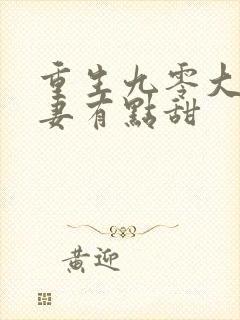 重生九零大
妻有點甜
黃迎